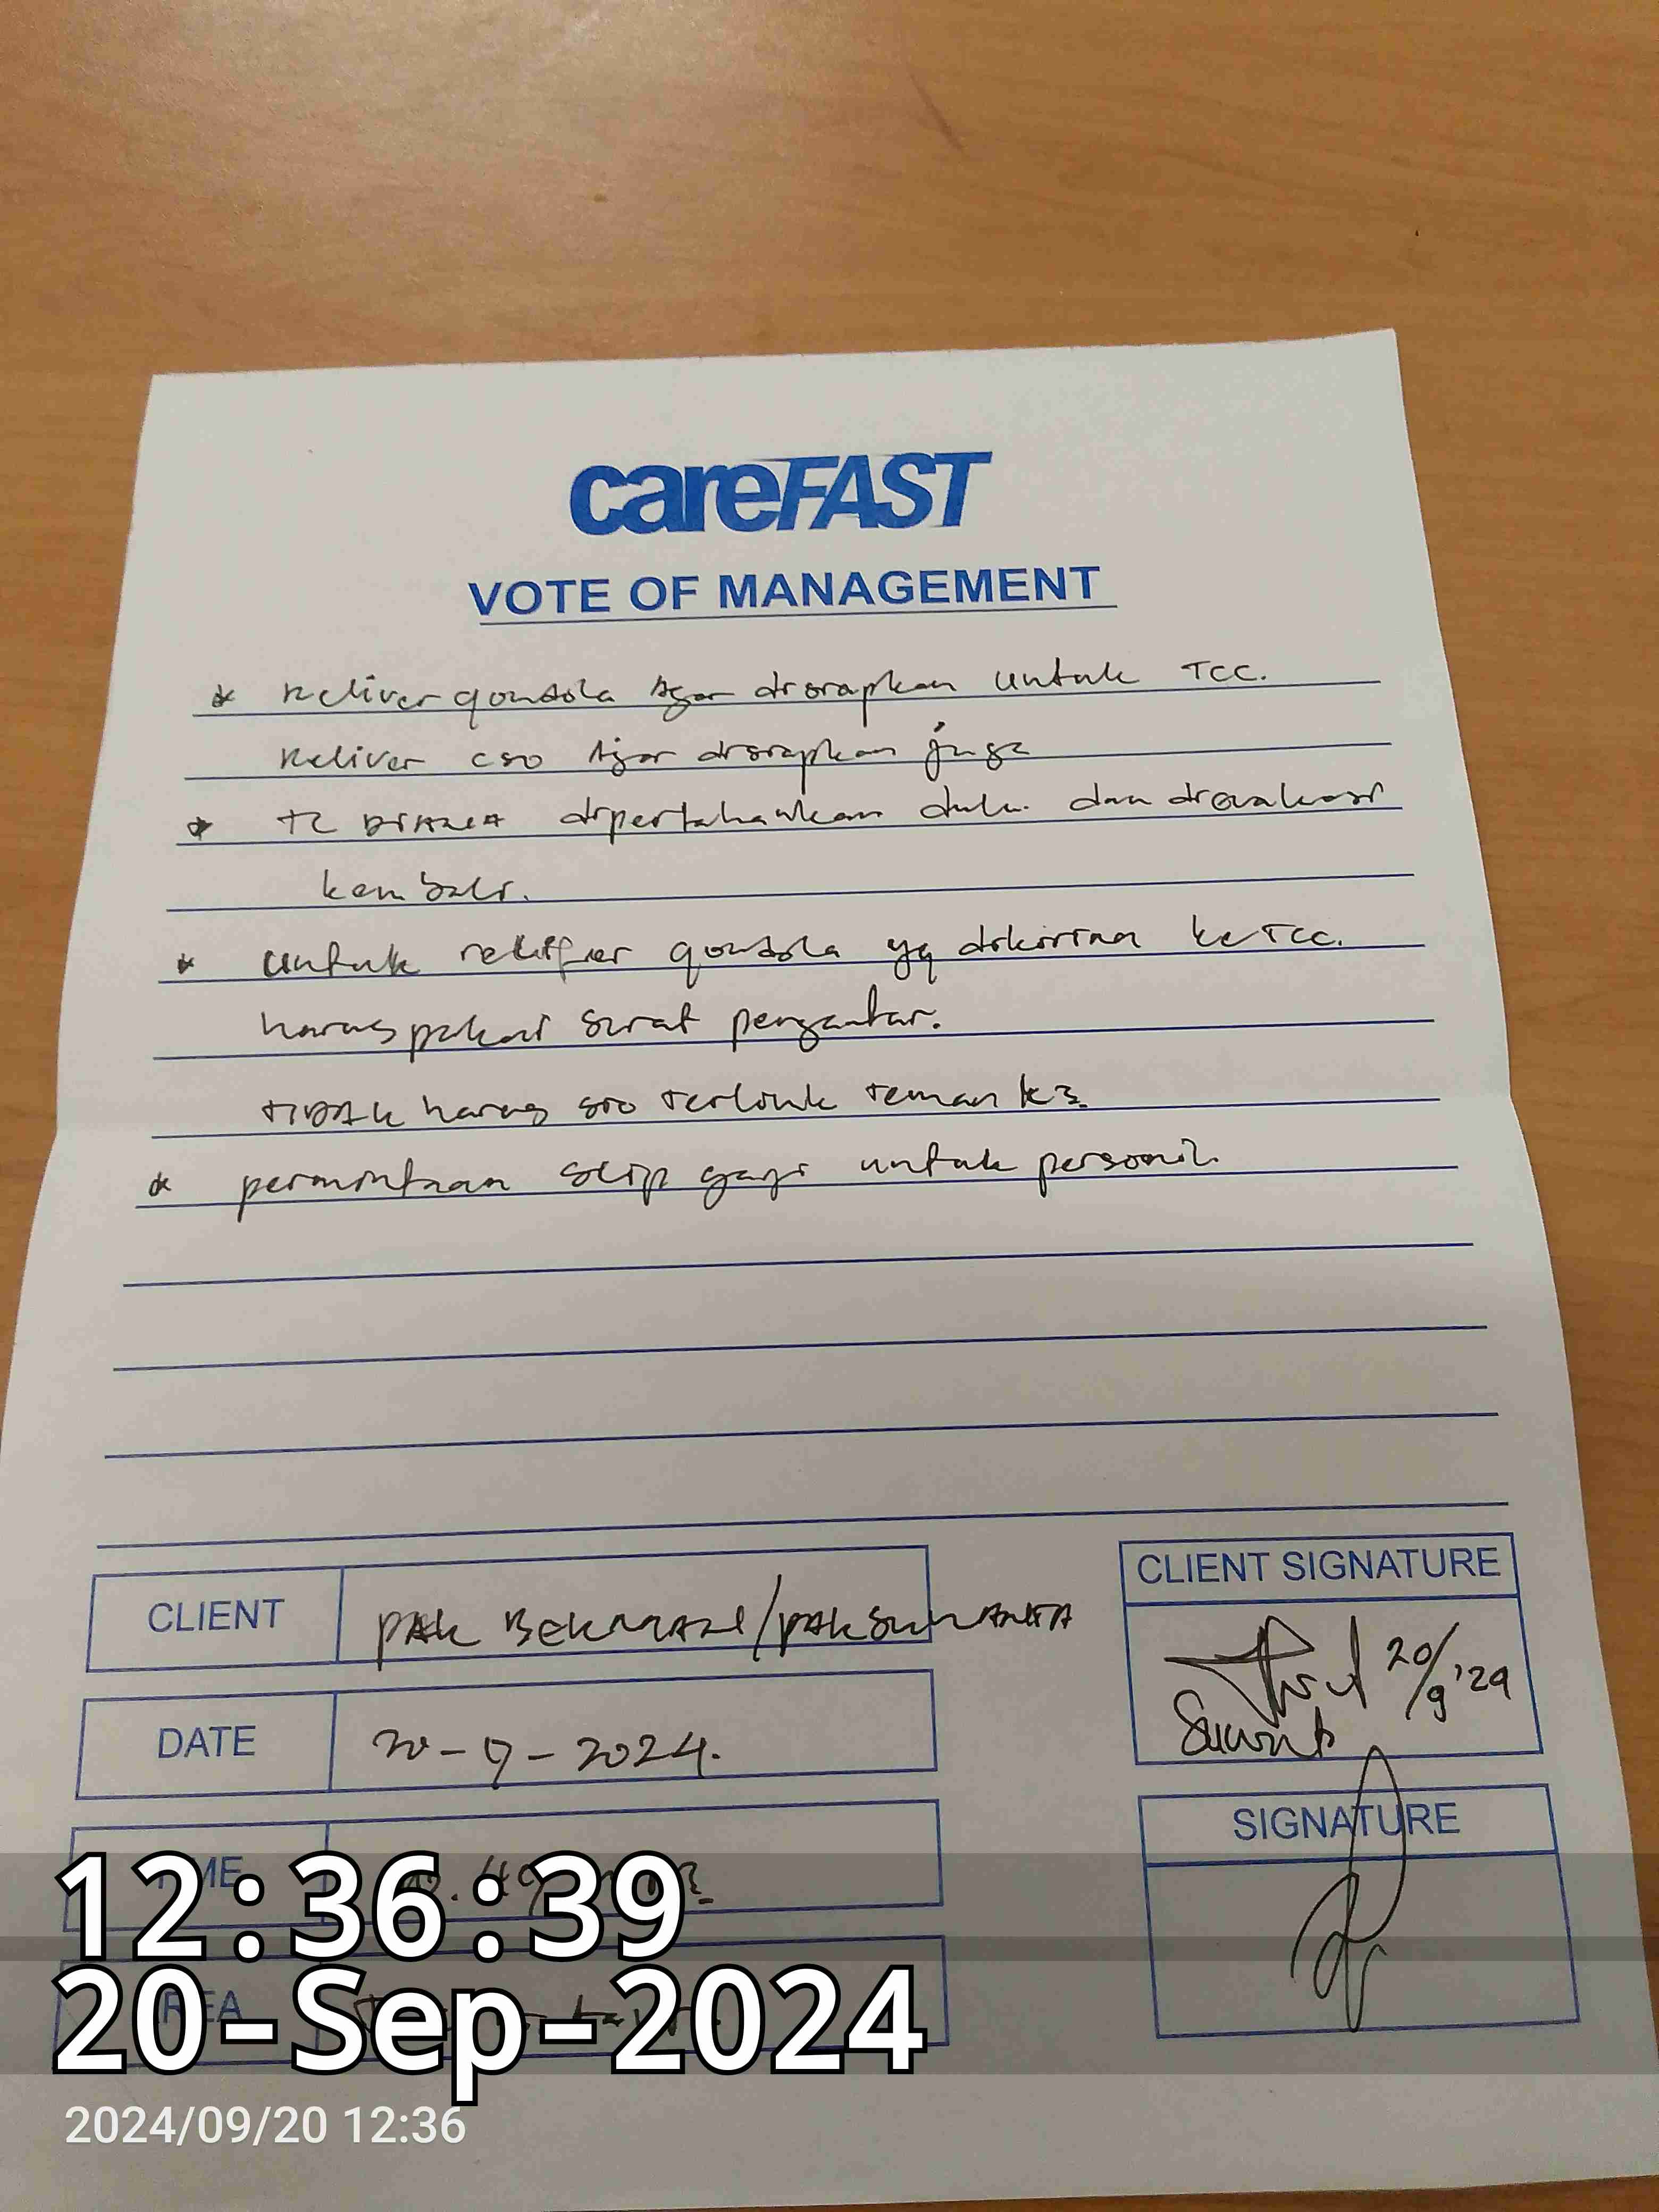 careFAST
VOTE OF MANAGEMENT
* Reliver gondola Agar disiapkan untuk TCC.
Reliver CSO Agar disiapkan juga
* TL dipertahankan dulu. dan dievaluasi
kembali.
* untuk gondola yg dikirim ke TCC.
harus pakai surat pengantar.
TIDAK harus SIO Teman K3.
* permintaan slip gaji untuk personil.
CLIENT PAK BEKMAZI/PAK SUWANTA
CLIENT SIGNATURE
20/9 '24
DATE 20-9-2024.
SIGNATURE
12:36:39
20-Sep-2024
2024/09/20 12:36